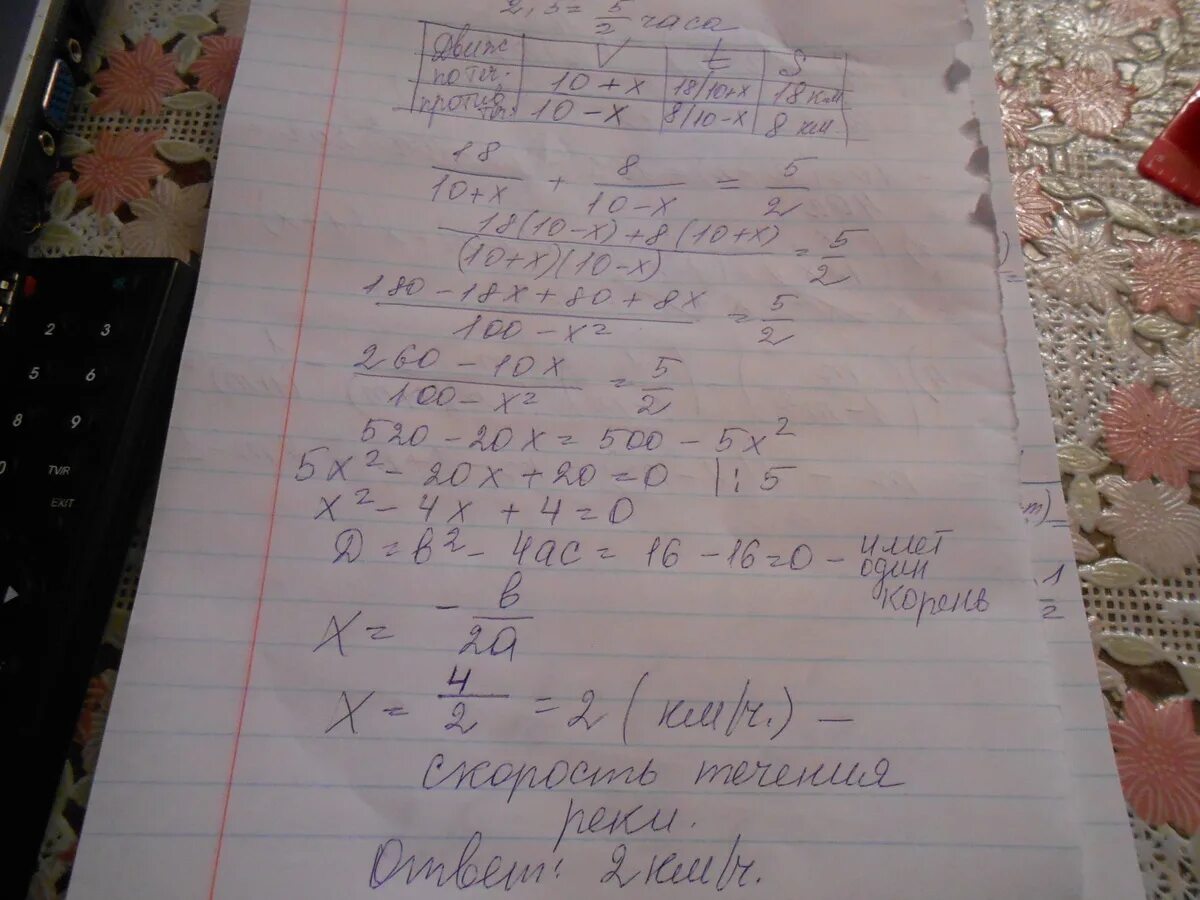 2,5 = 5/2 часа
Движ V t S
по теч. 10+x 18/10+x 18 км
против теч. 10-x 8/10-x 8 км
18/(10+x) + 8/(10-x) = 5/2
(18(10-x)+8(10+x))/((10+x)(10-x)) = 5/2
(180-18x+80+8x)/(100-x²) = 5/2
(260-10x)/(100-x²) = 5/2
520-20x=500-5x²
5x²-20x+20=0 |:5
x²-4x+4=0
Д=в²-4ac=16-16=0 - имет
один
корень
x = -в/2a
x = 4/2 = 2 (км/ч.) —
скорость течения
реки.
Ответ: 2км/ч.
2 3
5 6
8 9
0 TV/R
EXIT
1/2